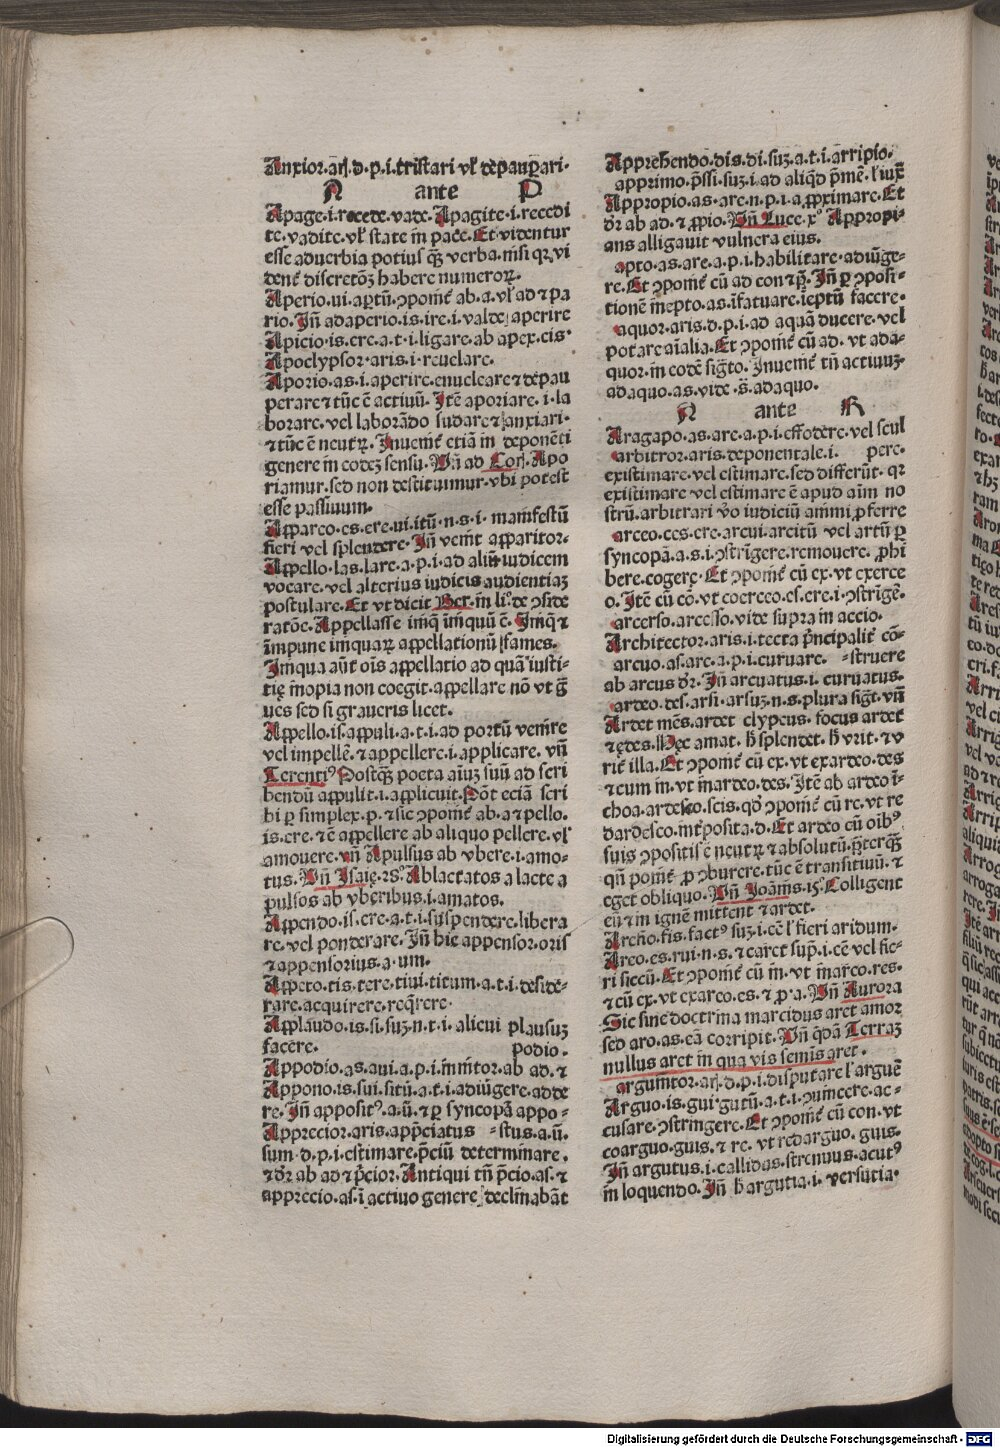 Anxior.arꝭ.d.p.i.tristari vl̄ depaup̱ari.
A ante P
Apage.i.recede.vade.Apagite.i.recedi
te.vadite.vl̄ state in pace.Et videntur
esse aduerbia potius qȝ verba.nisi qꝛ vi
dent̄ discretōȝ habere numeroꝝ.
Aperio.ui.aptū.ↄponit̄ ab.a.vl̄ ad ⁊ pa
rio.Jn̄ adaperio.is.ire.i.valde aperire
Apicio.is.ere.a.t.i.ligare.ab apex.cis.
Apoclypsor.aris.i.reuelare.
Aporio.as.i.aperire.enucleare ⁊ depau
perare ⁊ tūc ē actiuū.Jtē aporiare.i.la
borare.vel laborādo sudare ⁊ anxiari.
⁊ tūc ē neutꝝ.Jnuenit̄ etiā in deponēti
genere in eodeȝ sensu.Vn̄ ad Corꝭ.Apo
riamur.sed non destituimur.vbi potest
esse passiuum.
Appareo.es.ere.ui.itū.n.s.i.manifestū
fieri vel splendere.Jn̄ venit apparitor.
Appello.las.lare.a.p.i.ad aliū iudicem
vocare.vel alterius iudicis audientiaȝ
postulare.Et vt dicit Ber.in li.de ↄside
ratōe.Appellasse iniq̄ iniquū ē.Jniq̄ ⁊
impune iniquaꝝ appellationū fames.
Jniqua aūt ois appellatio ad quā iusti-
tię inopia non coegit.appellare nō vt ḡ
ues sed si graueris licet.
Appello.is.appuli.a.t.i.ad portū venire
vel impellē.⁊ appellere.i.applicare.vn̄
Terentiꝰ Postqȝ poeta aiuȝ suū ad scri
bendū appulit.i.applicuit.Pōt eciā scri
bi ꝑ simplex.p.⁊ sic ↄponit̄ ab.a ⁊ pello.
is.ere.⁊ ē appellere ab aliquo pellere.vl̄
amouere.vn̄ Apulsus ab vbere.i.amo-
tus.Vn̄ Jsaię.28.Ablactatos a lacte a
pulsos ab vberibus.i.amatos.
Appendo.is.ere.a.t.i.suspendere.libera
re.vel ponderare.Jn̄ hic appensor.oris
⁊ appensorius.a.um.
Appeto.tis.tere.tiui.titum.a.t.i.deside-
rare.acquirere.reqrere.
Applaudo.is.si.suȝ.n.t.i.alicui plausuȝ
facere. podio.
Appodio.as.aui.a.p.i.innitor.ab ad.⁊
Appono.is.sui.sitū.a.t.i.adiūgere.adde
re.Jn̄ appositꝰ.a.ū.⁊ ꝑ syncopā appo-
Apprecior.aris.app̄ciatus -stus.a.ū.
sum.d.p.i.estimare.p̄ciū determinare.
⁊ dr̄ ab ad ⁊ p̄cior.Antiqui tn̄ p̄cio.as.⁊
apprecio.as.i actiuo genere declinabāt
Apprehendo.dis.di.suȝ.a.t.i.arripio.
apprimo.p̄ssi.suȝ.i ad aliqd p̄mē.l̄ iux̄
Appropio.as.are.n.p.i.a ꝓximare.Et
dr̄ ab ad.⁊ ꝓpio.Vn̄ Luce.x. Appropi-
ans alligauit vulnera eius.
apto.as.are.a.p.i.habilitare.adiūge-
re.Et ↄponit̄ cū ad con ⁊ p̄.Jn̄ ꝑ ↄposi-
tionē inepto.as.īfatuare.ieptū facere.
aquor.aris.d.p.i.ad aquā ducere.vel
potare aialia.Et ↄponit̄ cū ad.vt ada-
quor.in eodē sigto.Jnuenit̄ tn̄ actiuuȝ.
adaquo.as.vide s̄.adaquo.
A ante R
Aragapo.as.are.a.p.i.effodere.vel scul
arbitror.aris.deponentale.i. pere.
existimare.vel estimare.sed differūt.qꝛ
existimare vel estimare ē apud aim no
strū.arbitrari v̄o iudiciū animi ꝓferre
arceo.ces.cre.arcui.arcitū vel artū ꝑ
syncopā.a.s.i.ↄstrigere.remouere.ꝓhi
bere.cogere.Et ↄponit̄ cū ex.vt exerce
o.Jtē cū cō.vt coerceo.es.ere.i.ↄstrigē.
arcerso.arcesso.vide supra in accio.
Architector.aris.i.tecta p̄ncipalit̄ cō-
arcuo.as.are.a.p.i.curuare. -struere
ab arcus dr̄.Jn̄ arcuatus.i.curuatus.
ardeo.des.arsi.arsuȝ.n.s.plura sigt.vn̄
Ardet mēs.ardet clypeus.focus ardet
⁊ ędes.Hęc amat.h̄ splendet.h̄ vrit.⁊ v
rit̄ illa.Et ↄponit̄ cū ex.vt exardeo.des
⁊ cum in.vt inardeo.des.Jtē ab ardeo i-
choa.ardesco.scis.qd̄ ↄponit̄ cū re.vt re
dardesco.int̄posita.d.Et ardeo cū oībꝰ
suis ↄpositis ē neutꝝ ⁊ absolutū.p̄terqȝ
qn̄ ponit̄ ꝓ ↄburere.tūc ē transitiuū.⁊
eget obliquo.Vn̄ Joānis.15.Colligent
eū ⁊ in ignē mittent ⁊ ardet.
Arefio.fis.factꝰ suȝ.i.cē l̄ fieri aridum.
Areo.es.rui.n.s.⁊ caret sup̄.i.cē vel fie-
ri siccū.Et ↄponit̄ cū in.vt inareo.res.
⁊ cū ex.vt exareo.es.⁊ ꝓ a.Vn̄ Aurora
Sic sine doctrina marcidus aret amor
sed aro.as.eā corripit.Vn̄ qdā Terraȝ
nullus aret in qua vis seminis aret.
argumtor.arꝭ.d.p.i.disputare l̄ arguē
Arguo.is.gui.gutū.a.t.i.ↄuincere.ac-
cusare.ↄstringere.Et ↄponit̄ cū con.vt
coarguo.guis.⁊ re.vt redarguo.guis.
Jn̄ argutus.i.callidus.strenuus.acutꝰ
in loquendo.Jn̄ h̄ argutia.i.versutia.
Digitalisierung gefördert durch die Deutsche Forschungsgemeinschaft - DFG